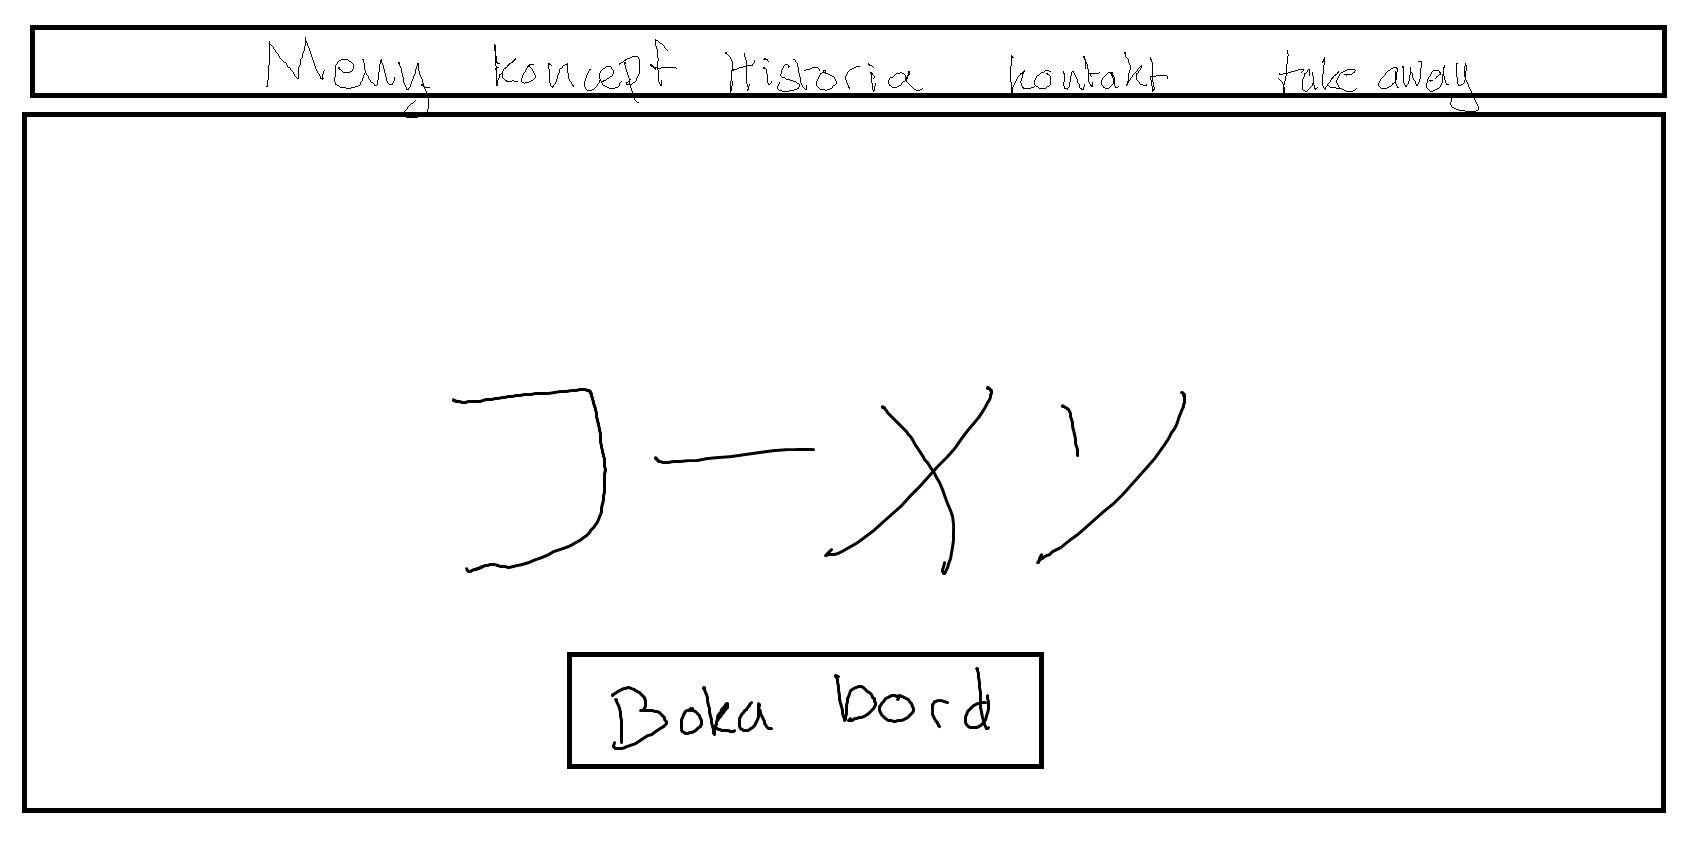 Meny koncept Historia kontakt take away
コーメソ
Boka bord